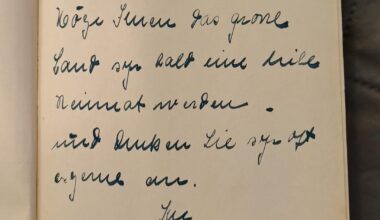 Möge Ihnen das grosse
Land sehr bald eine liebe
Heimat werden.
und denken Sie sehr oft
u. gerne an.